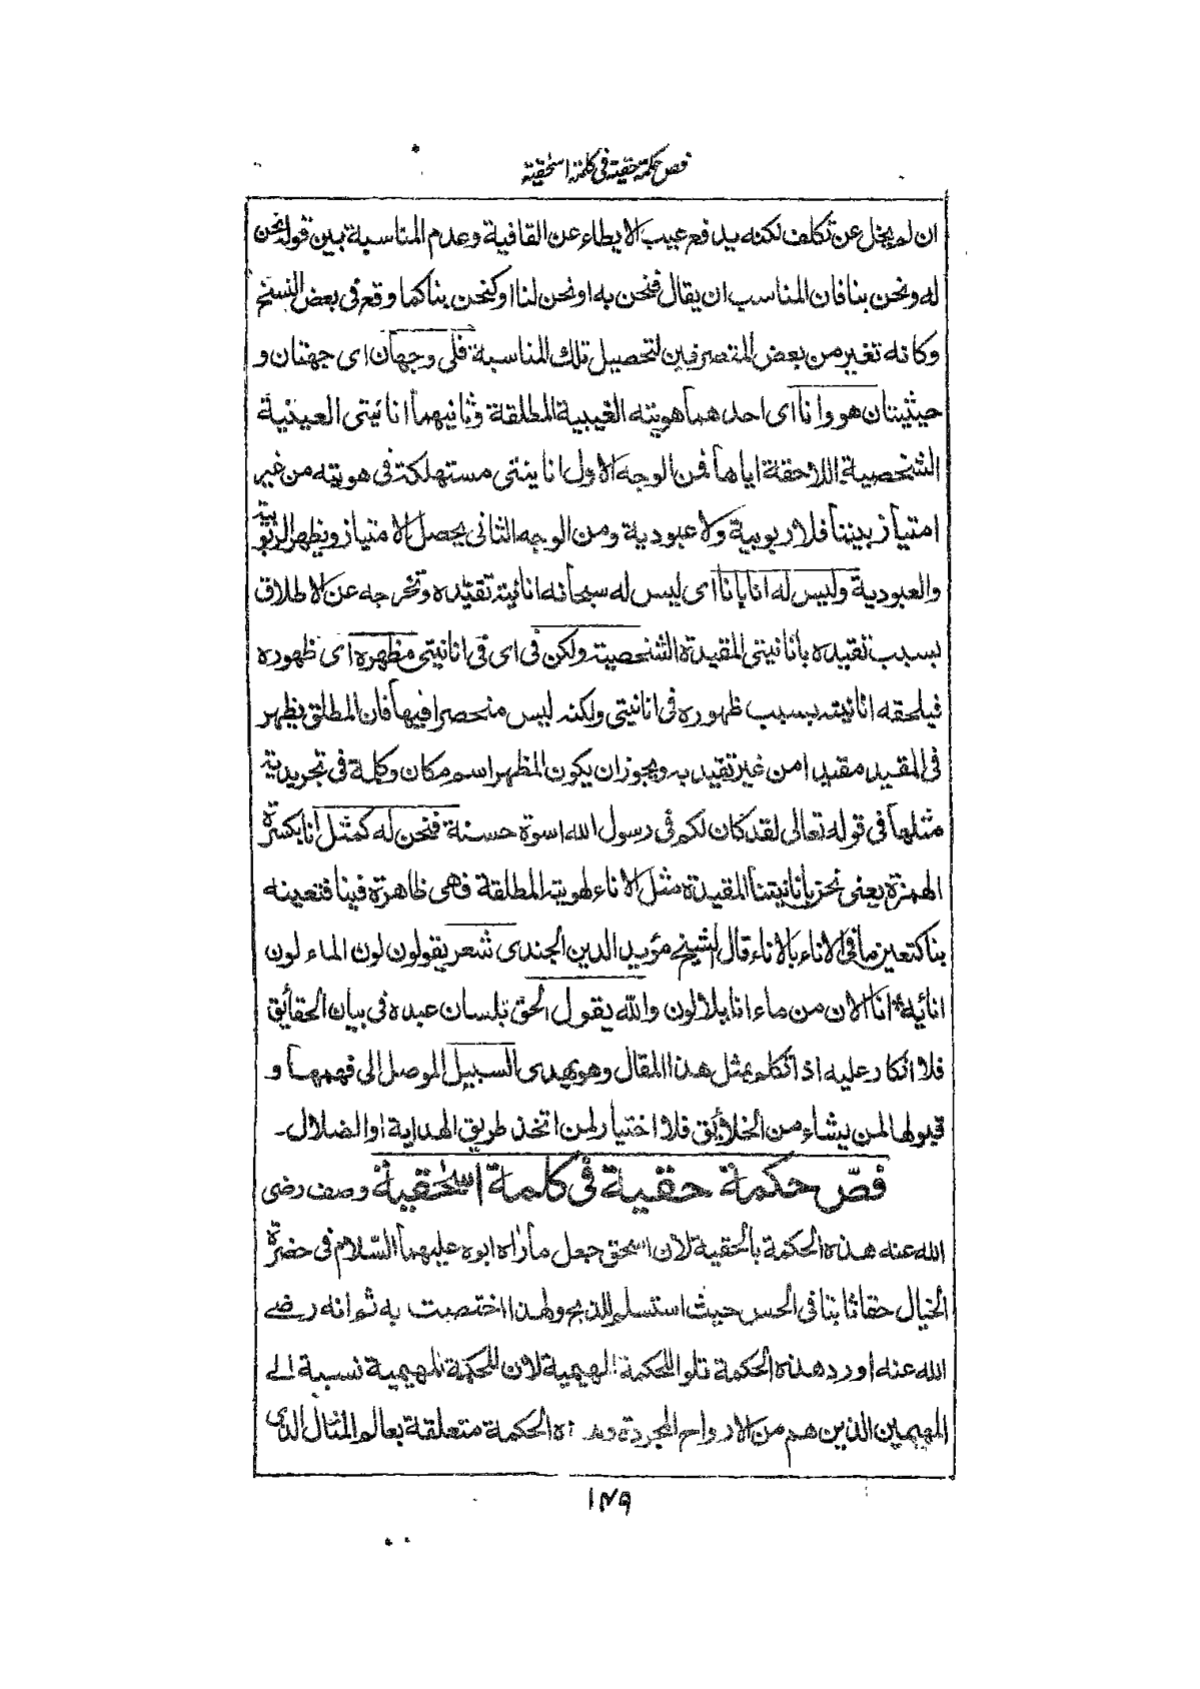 فص حكمة حقية في كلمة اسحقية
ان لم يخل عن تكلف لكنه يدفع عيب الايطاء عن القافية وعدم المناسبة بين قوله نحن
له ونحن بنا فان المناسب ان يقال فنحن به او نحن لنا او كنحن بنا كما وقع في بعض النسخ
وكانه تغير من بعض المتصرفين لتحصيل تلك المناسبة فلى وجهان اى جهتان و
حيثيتان هو وانا اى احدهما هويته الغيبية المطلقة وثانيهما انائيتى العينية
الشخصية اللاحقة اياها فمن الوجه الاول انايتى مستهلكة فى هويته من غير
امتياز بيننا فلا ربوبية ولا عبودية ومن الوجه الثانى يحصل الامتياز ويظهر الربوبية
والعبودية وليس له انا بانا اى ليس له سبحانه انائية تقيده وتخرجه عن الاطلاق
بسبب تقيده بانانيتى المقيدة الشخصية ولكن فى اى فى انانيتى مظهره اى ظهوره
فيلحقه انانيته بسبب ظهوره فى انانيتى ولكنه ليس منحصرا فيها فان المطلق يظهر
فى المقيد مقيدا من غير تقيد به ويجوز ان يكون المظهر اسم مكان وكلمة فى تجريدية
مثلها فى قوله تعالى لقد كان لكم فى رسول الله اسوة حسنة فنحن له كمثل انا بكسرة
الهمزة يعنى نحن بانانيتنا المقيدة مثل الاناء لهويته المطلقة فهى ظاهرة فينا فتعينه
بنا كتعين ما فى الاناء بالاناء قال الشيخ مؤيد الدين الجندى شعر يقولون لون الماء لون
انائية انا الان من ماء انا بلا لون والله يقول الحق بلسان عبده فى بيان الحقائق
فلا انكار عليه اذا تكلم بمثل هذا المقال وهو يهدى السبيل الموصل الى فهمها و
قبولها لمن يشاء من الخلائق فلا اختيار لمن اتخذ طريق الهداية او الضلال۔
فصّ حكمة حقية فى كلمة اسحٰقية وصف رضى
الله عنه هذه الحكمة بالحقية لان اسحق جعل ما رأه ابوه عليهما السّلام فى حضرة
الخيال حقا ثابتا فى الحس حيث استسلم للذبح ولهذا اختصت به ثم انه رضے
الله عنه اورد هذه الحكمة تلو الحكمة المهيمية لان للحكمة المهيمية نسبة الے
المهيمين الذين هم من الارواح المجردة وهذه الحكمة متعلقة بعالم المثال الذى
١٣٩